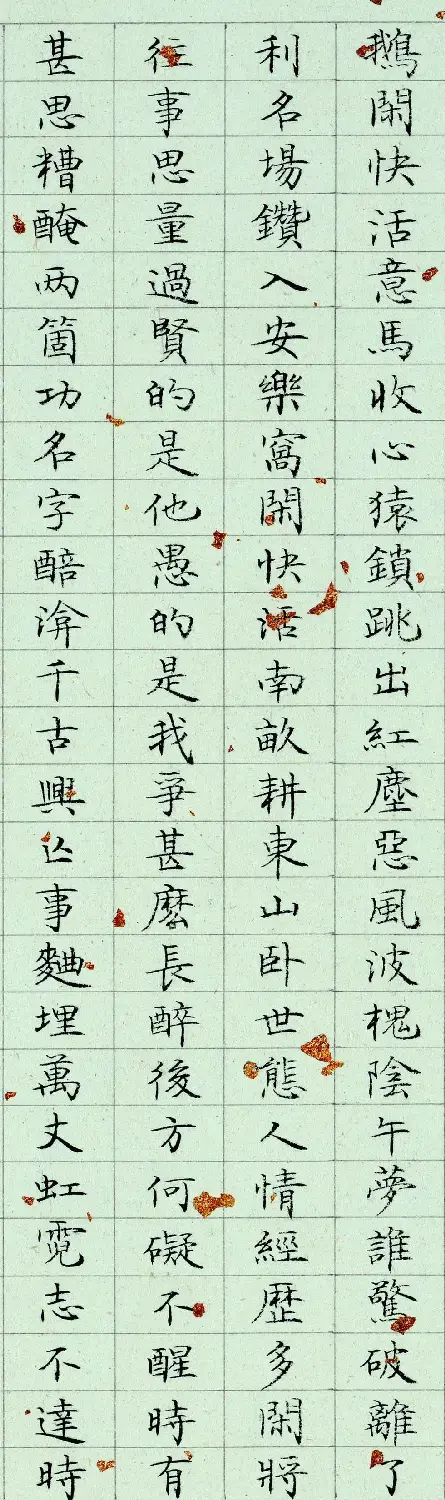 鵝閑快活意馬收心猿鎖跳出紅塵惡風波槐陰午夢誰驚破離了
利名場鑽入安樂窩閑快活南畝耕東山卧世態人情經歷多閑將
往事思量過賢的是他愚的是我爭甚麽長醉後方何礙不醒時有
甚思糟醃两箇功名字醅渰千古興亾事麯埋萬丈虹霓志不達時